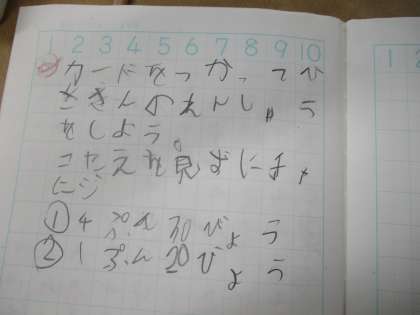 1 2 3 4 5 6 7 8 9 10
カードをつかってひ
きざんのえんしゅう
をしよう。
コタえを見ずにチャ
レンジ
① 4ぷん30びょう
② 1ぷん20びょう
1 2